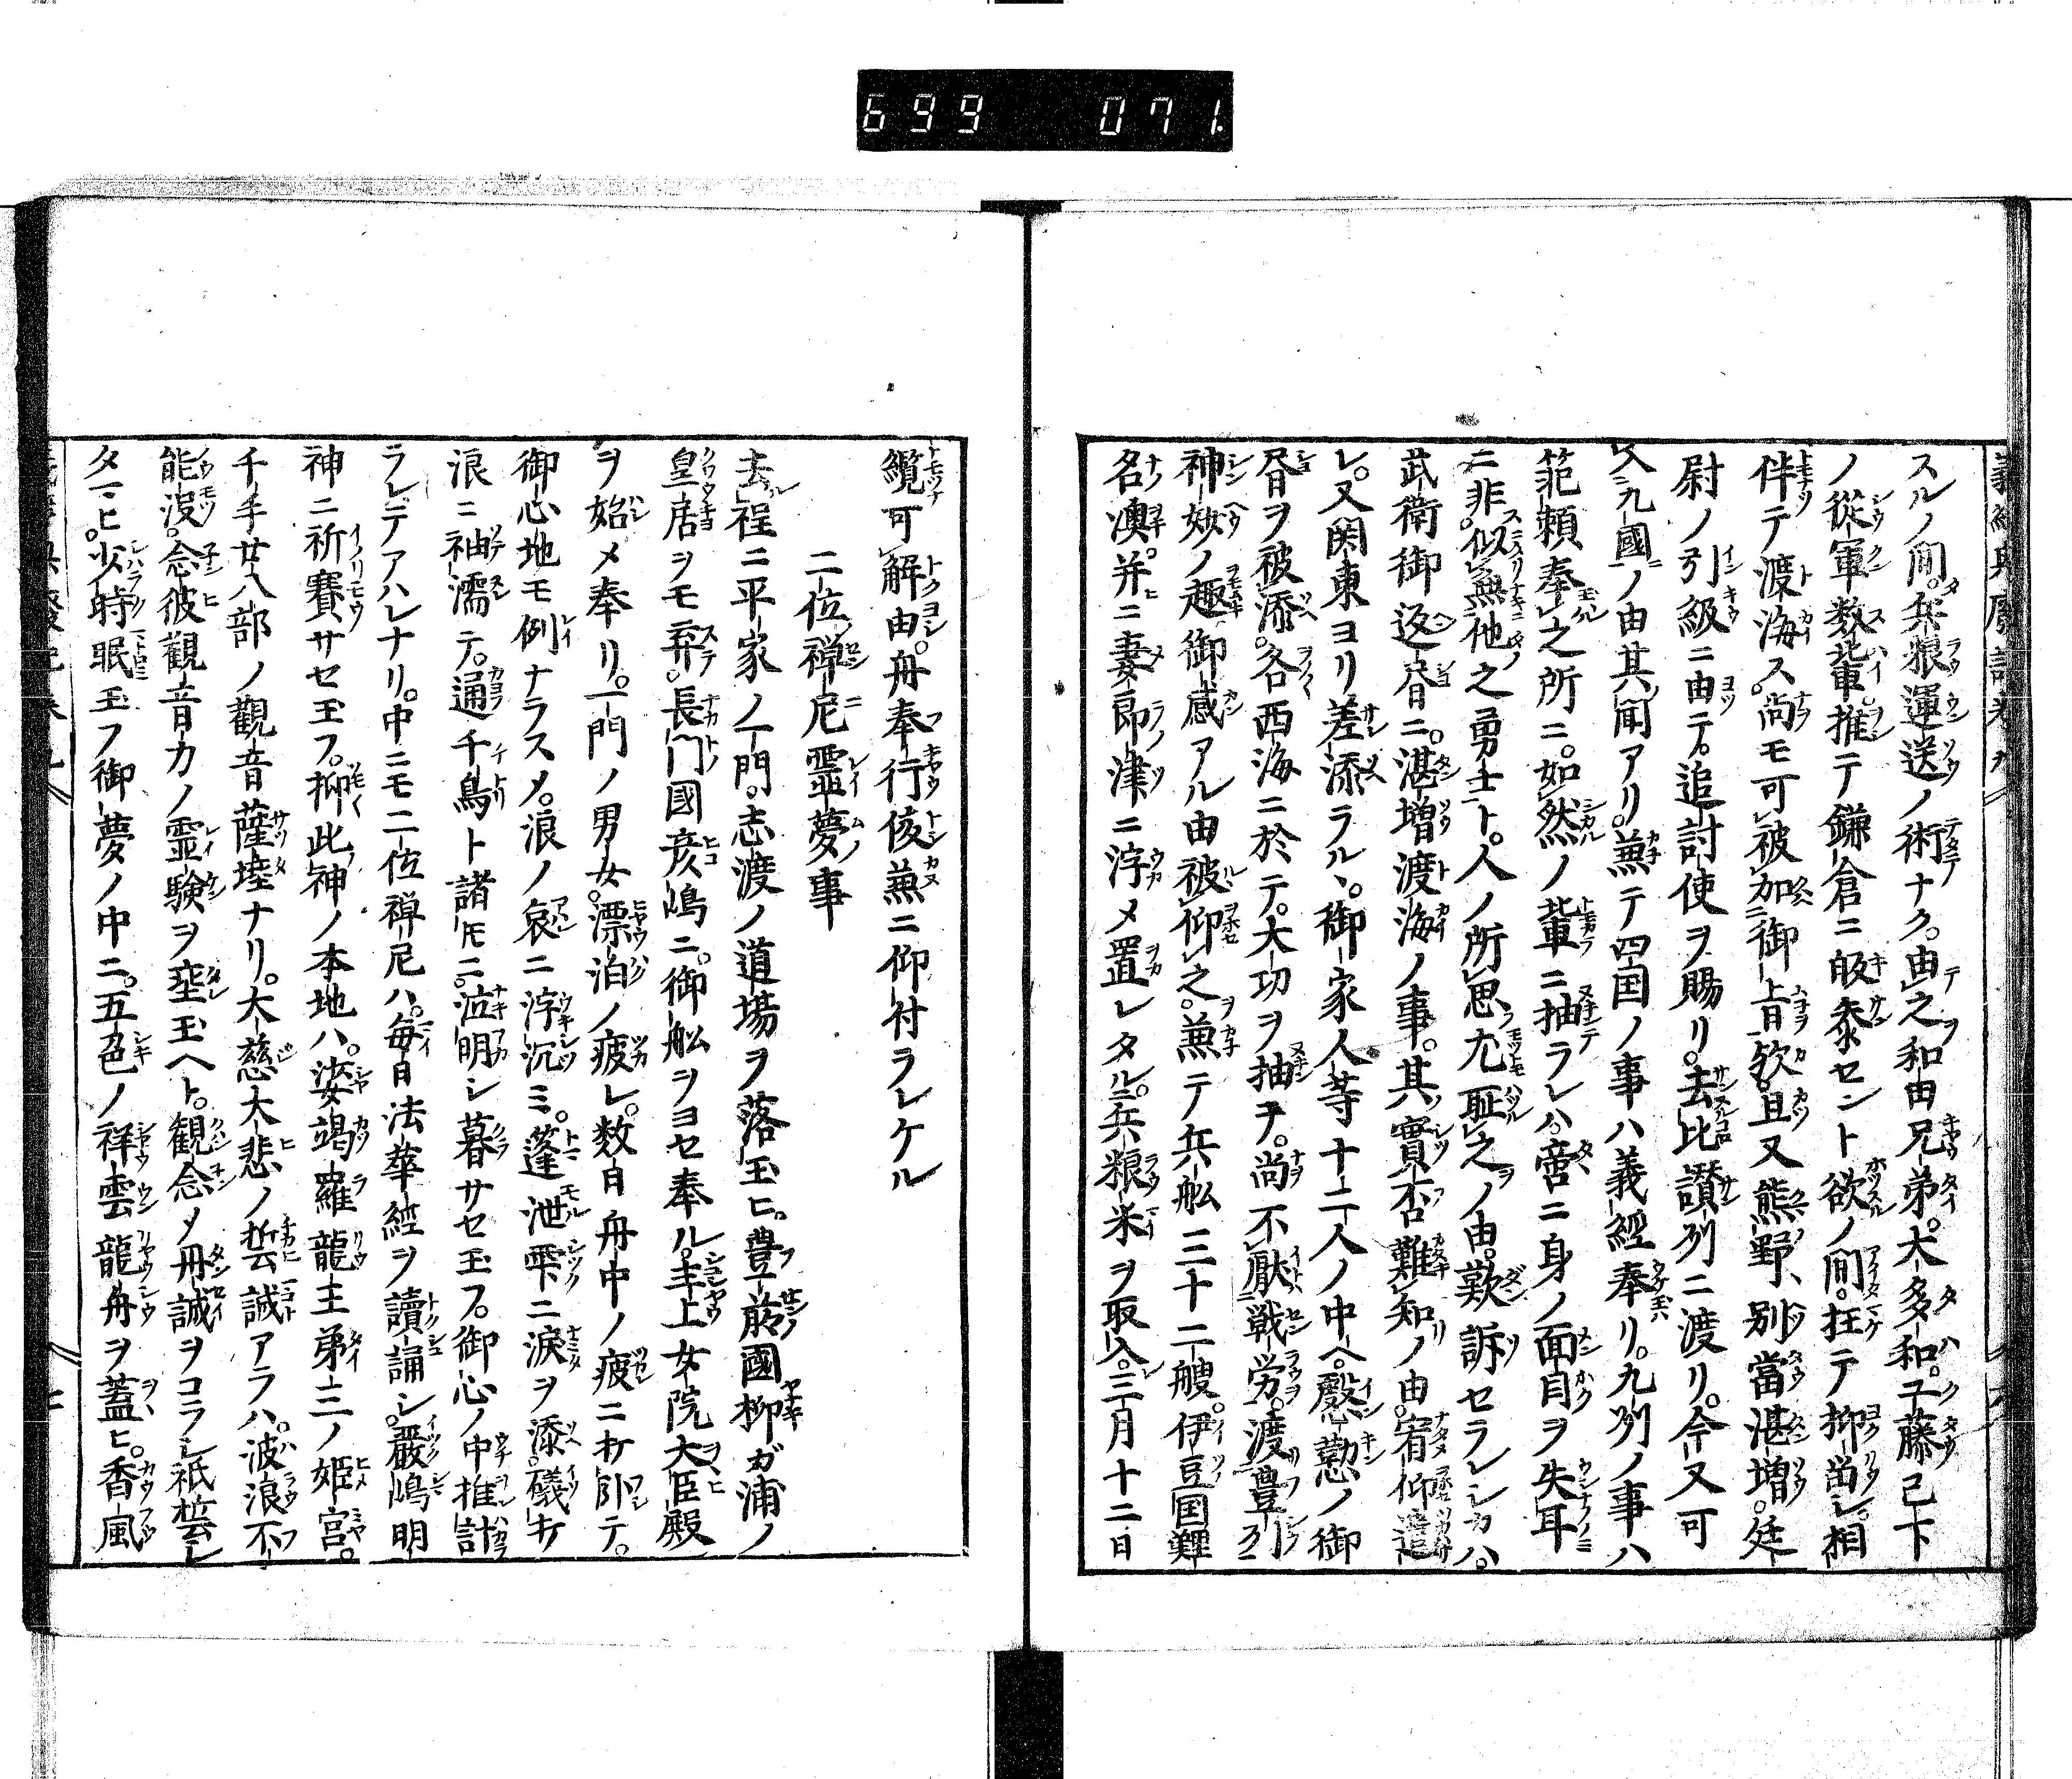 699 071.
スルノ間。兵粮運送ノ術ナク。由之和田兄弟。大多和。工藤已下
ノ從軍数輩推テ鎌倉ニ皈参セント欲ノ間。枉テ抑畄シ相
伴テ渡海ス。尚モ可被加御上旨欤。且又熊野別當湛増。廷
尉ノ引級ニ由テ。追討使ヲ賜リ。去比讃州ニ渡リ。今又可
入九國ノ由其聞アリ。兼テ四国ノ事ハ義經奉リ。九州ノ事ハ
範頼奉之所ニ。如然ノ輩ニ抽ラレハ。啻ニ身ノ面目ヲ失耳
ニ非。似無他之勇士ト。人ノ所思尤耻之ノ由。歎訴セラレシカハ。
武衛御返昏ニ。湛増渡海ノ事。其實否難知ノ由。宥仰遣
レ。又関東ヨリ差添ラル丶。御家人等十二人ノ中ヘ。慇懃ノ御
昏ヲ被添。各西海ニ於テ。大功ヲ抽ヲ。尚不厭戦労。渡豊州
神妙ノ趣御感アル由被仰之。兼テ兵舩三十二艘。伊豆国鯉
名澳并ニ妻郎津ニ浮メ置レタル。兵粮米ヲ取入。三月十二日
纜可解由。舟奉行俊兼ニ仰付ラレケル
二位禅尼霊夢事
去程ニ平家ノ一門。志渡ノ道場ヲ落玉ヒ。豊前國柳ガ浦ノ
皇居ヲモ弃。長門國彦嶋ニ。御舩ヲヨセ奉ル。主上女院大臣殿
ヲ始メ奉リ。一門ノ男女。漂泊ノ疲レ。数日舟中ノ疲ニ卧テ。
御心地モ例ナラスメ。浪ノ哀ニ浮沉ミ。蓬泄雫ニ淚ヲ添。礒
浪ニ袖濡テ。通千鳥ト諸ニ。泣明シ暮サセ玉フ。御心ノ中推計
ラレテアハレナリ。中ニモ二位禅尼ハ。毎日法華經ヲ讀誦シ。嚴嶋明
神ニ祈賽サセ玉フ。抑此神ノ本地ハ。娑竭羅龍主弟三ノ姫宮。
千手廿八部ノ觀音薩埵ナリ。大慈大悲ノ誓誠アラハ。波浪不
能没。念彼觀音力ノ霊験ヲ埀玉ヘト。観念メ丹誠ヲコラシ祇誓シ
タマヒ。少時眠玉フ御夢ノ中ニ。五色ノ祥雲龍舟ヲ蓋ヒ。香風